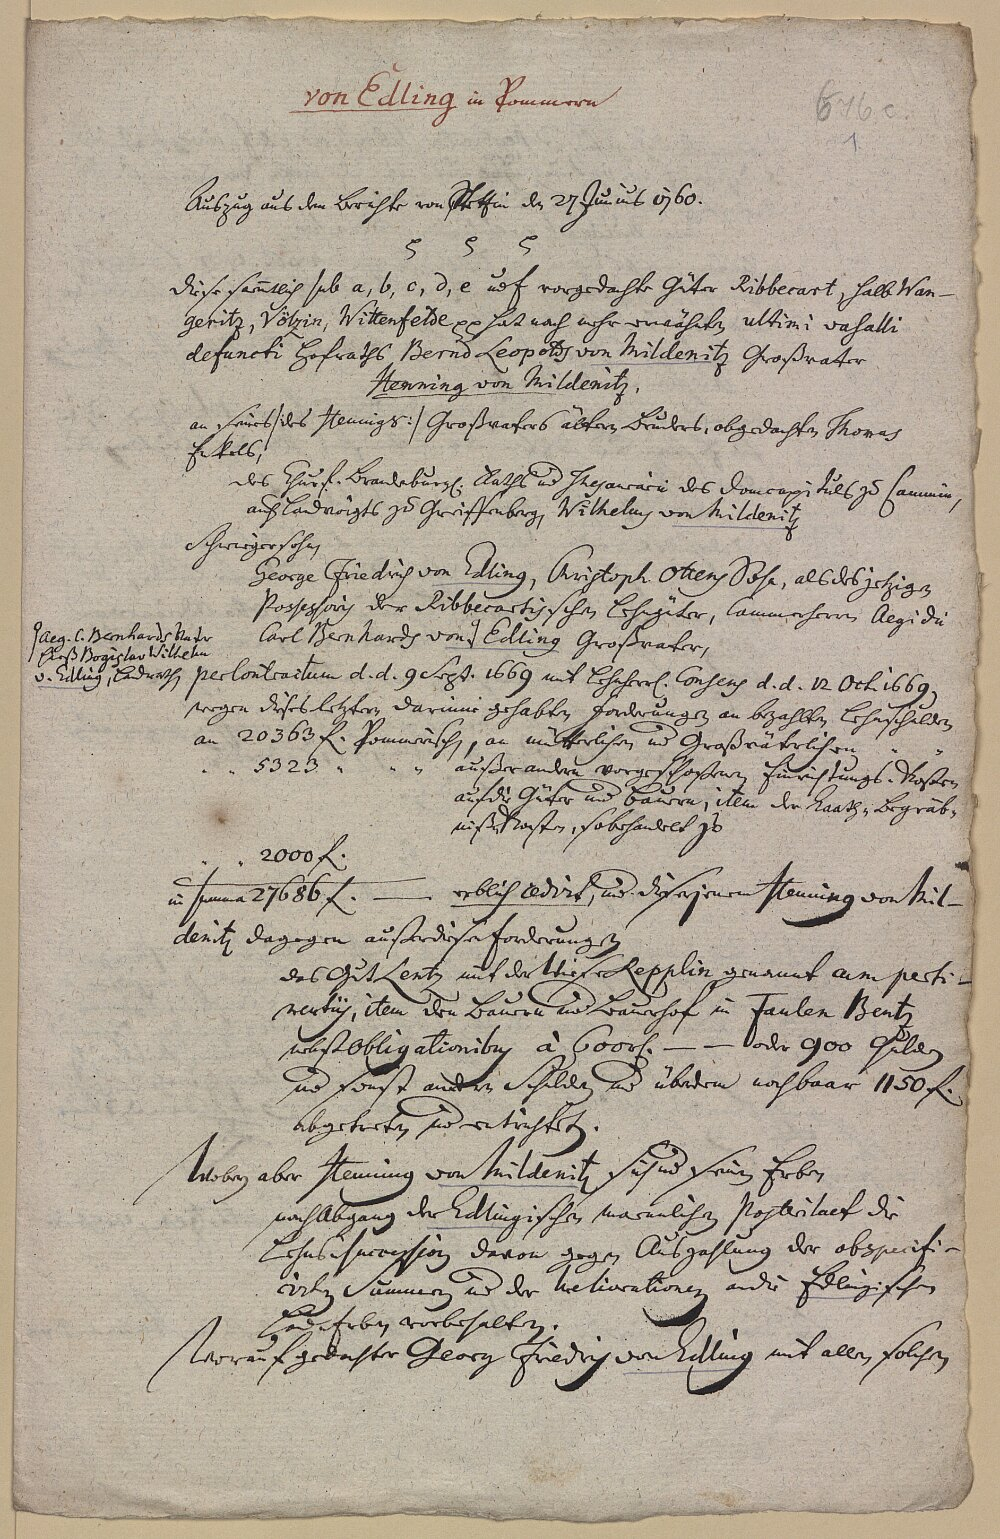 von Edling in Pommern
1
Auszug aus dem Berichte von Stettin den 27 Junius 1760.
Diese sämtlich sub a, b, c, d, e u f vorgedachte Güter Ribbecart, halb Wan-
geritz, Völtzin, Wittenfelde pp hat nach mehr erwähnten ultimi vasalli
defuncti Hofraths Bernd Leopolds von Mildenitz Großvater
Henning von Mildenitz,
an seines /:des Hennigs:/ Großvaters ältern Bruders, obgedachten Thomas
Enkels,
des Churf. Brandenburg. Raths und Thesaurarii des Domcapituls zu Cammin,
auch Landvoigts zu Greiffenberg, Wilhelms von Mildenitz
Schwiegersohn,
George Friedrich von Edling, Christoph Ottens Sohn, als des jetzigen
Possessoris der Ribbecartischen Lehngüter, Cammerherrn Aegidii
Carl Bernhards von Edling Großvater,
Aeg. C. Bernhards Vater
hieß Bogislav Wilhelm
v. Edling, Landrath,
per Contractum d.d. 9 Sept. 1669 mit Lehnherrl. Consens d.d. 12 Oct. 1669,
wegen dieses letztern darinne gehabten Forderungen an bezahlten Lehnschulden
an 20363 f. Pommerisch, an mütterlichen und Großväterlichen
" " 5323 " " " außer andern vorgeschoßenen Einrichtungs-Kosten
auf die Güter und Bauern, item der Raath- Begräb-
niß Kosten, so behandelt zu
" " 2000 f.
in summa 27686 f. — erblich cedirt, und dieser jenem Henning von Mil-
denitz dagegen außer diesen Forderungen
das Gut Lentz mit der Wiese Kepplin genannt cum perti-
nentiis, item den Bauern und Bauerhof in Faulen Bentz
nebst Obligationibus à 600 rf. — — oder 900 Gulden
und sonst andern Schulden und überdem noch baar 1150 f.
abgetreten und entrichtet.
Wobey aber Henning von Mildenitz sich und seinen Erben
nach Abgang der Edlingischen männlichen Posteritaet die
Lehns-Succession davon gegen Auszahlung der obspecifi-
cirten Summen und der Meliorationen an die Edlingischen
Land-Erben vorbehalten.
Worauf gedachter Georg Friedrich von Edling mit allen solchen